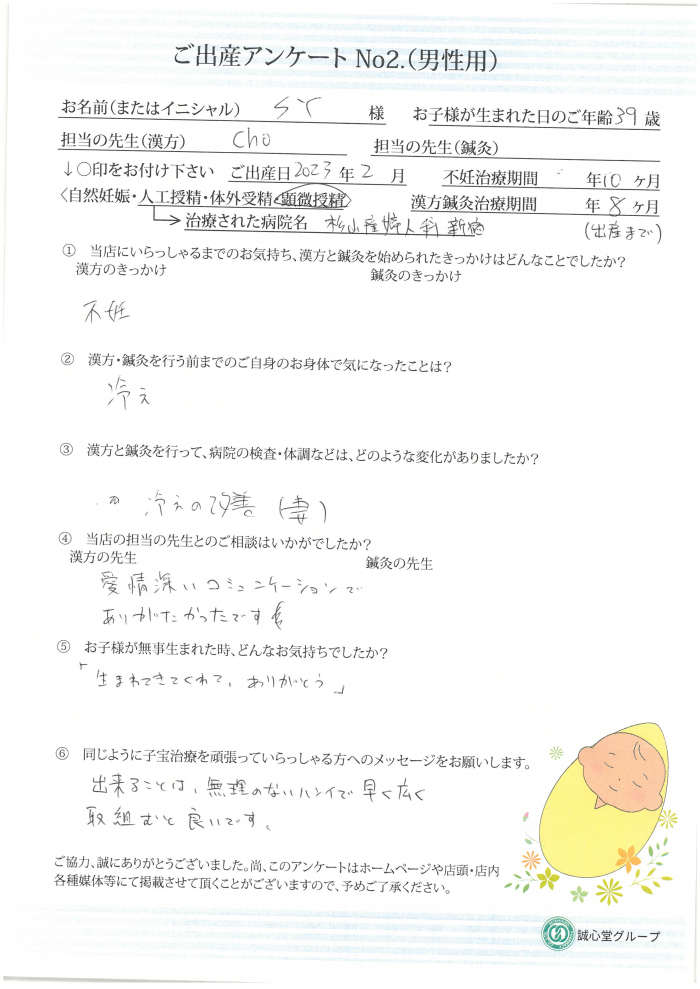 ご出産アンケート No2.(男性用)
お名前(またはイニシャル) SY 様 お子様が生まれた日のご年齢39歳
担当の先生(漢方) Cho 担当の先生(鍼灸)
↓○印をお付け下さい ご出産日2023年2月 不妊治療期間 年10ヶ月
〈自然妊娠・人工授精・体外受精・顕微授精〉 漢方鍼灸治療期間 年8ヶ月
→治療された病院名 杉山産婦人科新宿 (出産まで)
① 当店にいらっしゃるまでのお気持ち、漢方と鍼灸を始められたきっかけはどんなことでしたか?
漢方のきっかけ 鍼灸のきっかけ
不妊
② 漢方・鍼灸を行う前までのご自身のお身体で気になったことは?
冷え
③ 漢方と鍼灸を行って、病院の検査・体調などは、どのような変化がありましたか?
冷えの改善(妻)
④ 当店の担当の先生とのご相談はいかがでしたか?
漢方の先生 鍼灸の先生
愛情深いコミュニケーションで
ありがたかったです
⑤ お子様が無事生まれた時、どんなお気持ちでしたか?
「生まれてきてくれて、ありがとう」
⑥ 同じように子宝治療を頑張っていらっしゃる方へのメッセージをお願いします。
出来ることは、無理のないハンイで早く広く
取組むと良いです。
ご協力、誠にありがとうございました。尚、このアンケートはホームページや店頭・店内
各種媒体等にて掲載させて頂くことがございますので、予めご了承ください。
誠心堂グループ